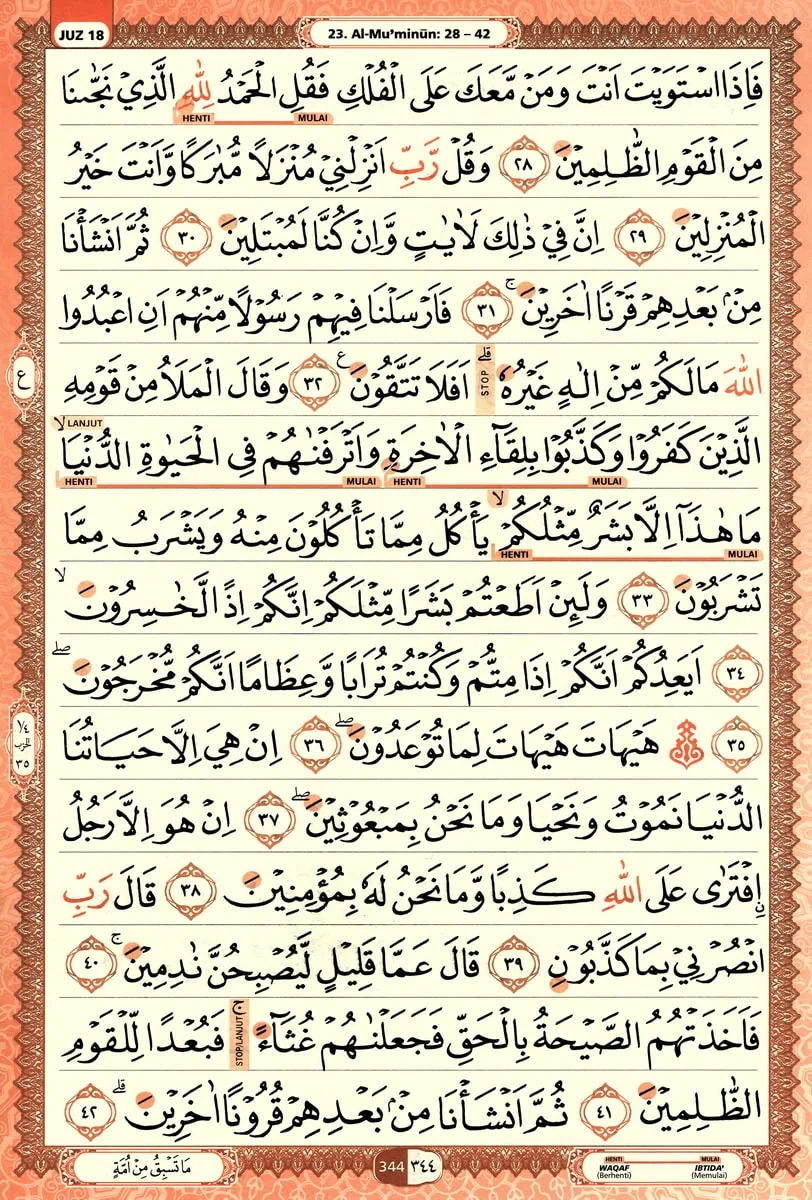 JUZ 18
23. Al-Mu’minūn: 28 – 42
فَاِذَا اسْتَوَيْتَ اَنْتَ وَمَنْ مَّعَكَ عَلَى الْفُلْكِ فَقُلِ الْحَمْدُ لِلّٰهِ الَّذِيْ نَجّٰىنَا
HENTI MULAI
مِنَ الْقَوْمِ الظّٰلِمِيْنَ ٢٨ وَقُلْ رَّبِّ اَنْزِلْنِيْ مُنْزَلًا مُّبٰرَكًا وَّاَنْتَ خَيْرُ
الْمُنْزِلِيْنَ ٢٩ اِنَّ فِيْ ذٰلِكَ لَاٰيٰتٍ وَّاِنْ كُنَّا لَمُبْتَلِيْنَ ٣٠ ثُمَّ اَنْشَأْنَا
مِنْۢ بَعْدِهِمْ قَرْنًا اٰخَرِيْنَ ۚ ٣١ فَاَرْسَلْنَا فِيْهِمْ رَسُوْلًا مِّنْهُمْ اَنِ اعْبُدُوا
اللّٰهَ مَا لَكُمْ مِّنْ اِلٰهٍ غَيْرُهٗ ۗ STOP اَفَلَا تَتَّقُوْنَ ࣖ ٣٢ وَقَالَ الْمَلَاُ مِنْ قَوْمِهِ
ع
LANJUT
الَّذِيْنَ كَفَرُوْا وَكَذَّبُوْا بِلِقَاۤءِ الْاٰخِرَةِ وَاَتْرَفْنٰهُمْ فِى الْحَيٰوةِ الدُّنْيَا ۙ
HENTI MULAI HENTI MULAI
مَا هٰذَآ اِلَّا بَشَرٌ مِّثْلُكُمْ ۙ يَأْكُلُ مِمَّا تَأْكُلُوْنَ مِنْهُ وَيَشْرَبُ مِمَّا
HENTI MULAI
تَشْرَبُوْنَ ٣٣ وَلَىِٕنْ اَطَعْتُمْ بَشَرًا مِّثْلَكُمْ اِنَّكُمْ اِذًا لَّخٰسِرُوْنَ ۙ
٣٤ اَيَعِدُكُمْ اَنَّكُمْ اِذَا مِتُّمْ وَكُنْتُمْ تُرَابًا وَّعِظَامًا اَنَّكُمْ مُّخْرَجُوْنَ ۖ
٣٥ ۞ هَيْهَاتَ هَيْهَاتَ لِمَا تُوْعَدُوْنَ ۖ ٣٦ اِنْ هِيَ اِلَّا حَيَاتُنَا
١/٤
الحزب
٣٥
الدُّنْيَا نَمُوْتُ وَنَحْيَا وَمَا نَحْنُ بِمَبْعُوْثِيْنَ ۖ ٣٧ اِنْ هُوَ اِلَّا رَجُلُ
ِۨافْتَرٰى عَلَى اللّٰهِ كَذِبًا وَّمَا نَحْنُ لَهٗ بِمُؤْمِنِيْنَ ٣٨ قَالَ رَبِّ
انْصُرْنِيْ بِمَا كَذَّبُوْنِ ٣٩ قَالَ عَمَّا قَلِيْلٍ لَّيُصْبِحُنَّ نٰدِمِيْنَ ۚ ٤٠
فَاَخَذَتْهُمُ الصَّيْحَةُ بِالْحَقِّ فَجَعَلْنٰهُمْ غُثَاۤءً ۚ STOP/LANJUT فَبُعْدًا لِّلْقَوْمِ
الظّٰلِمِيْنَ ٤١ ثُمَّ اَنْشَأْنَا مِنْۢ بَعْدِهِمْ قُرُوْنًا اٰخَرِيْنَ ۗ ٤٢
مَا تَسْبِقُ مِنْ اُمَّةٍ
344 ٣٤٤
HENTI MULAI
WAQAF (Berhenti) IBTIDA’ (Memulai)